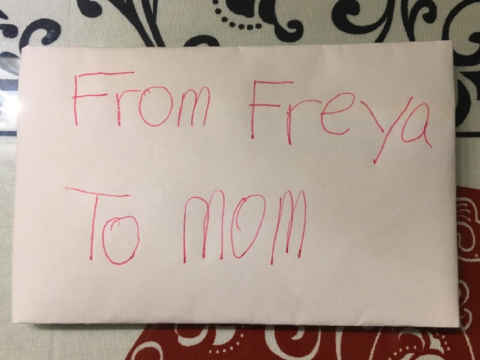 From Freya
To MOM